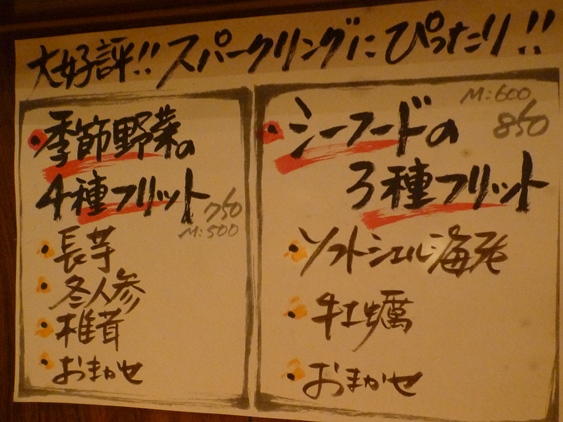 大好評!! スパークリングにぴったり!!
季節野菜の
4種フリット
750
M:500
長芋
冬人参
椎茸
おまかせ
M:600
850
シーフードの
3種フリット
ソフトシェル海老
牡蠣
おまかせ